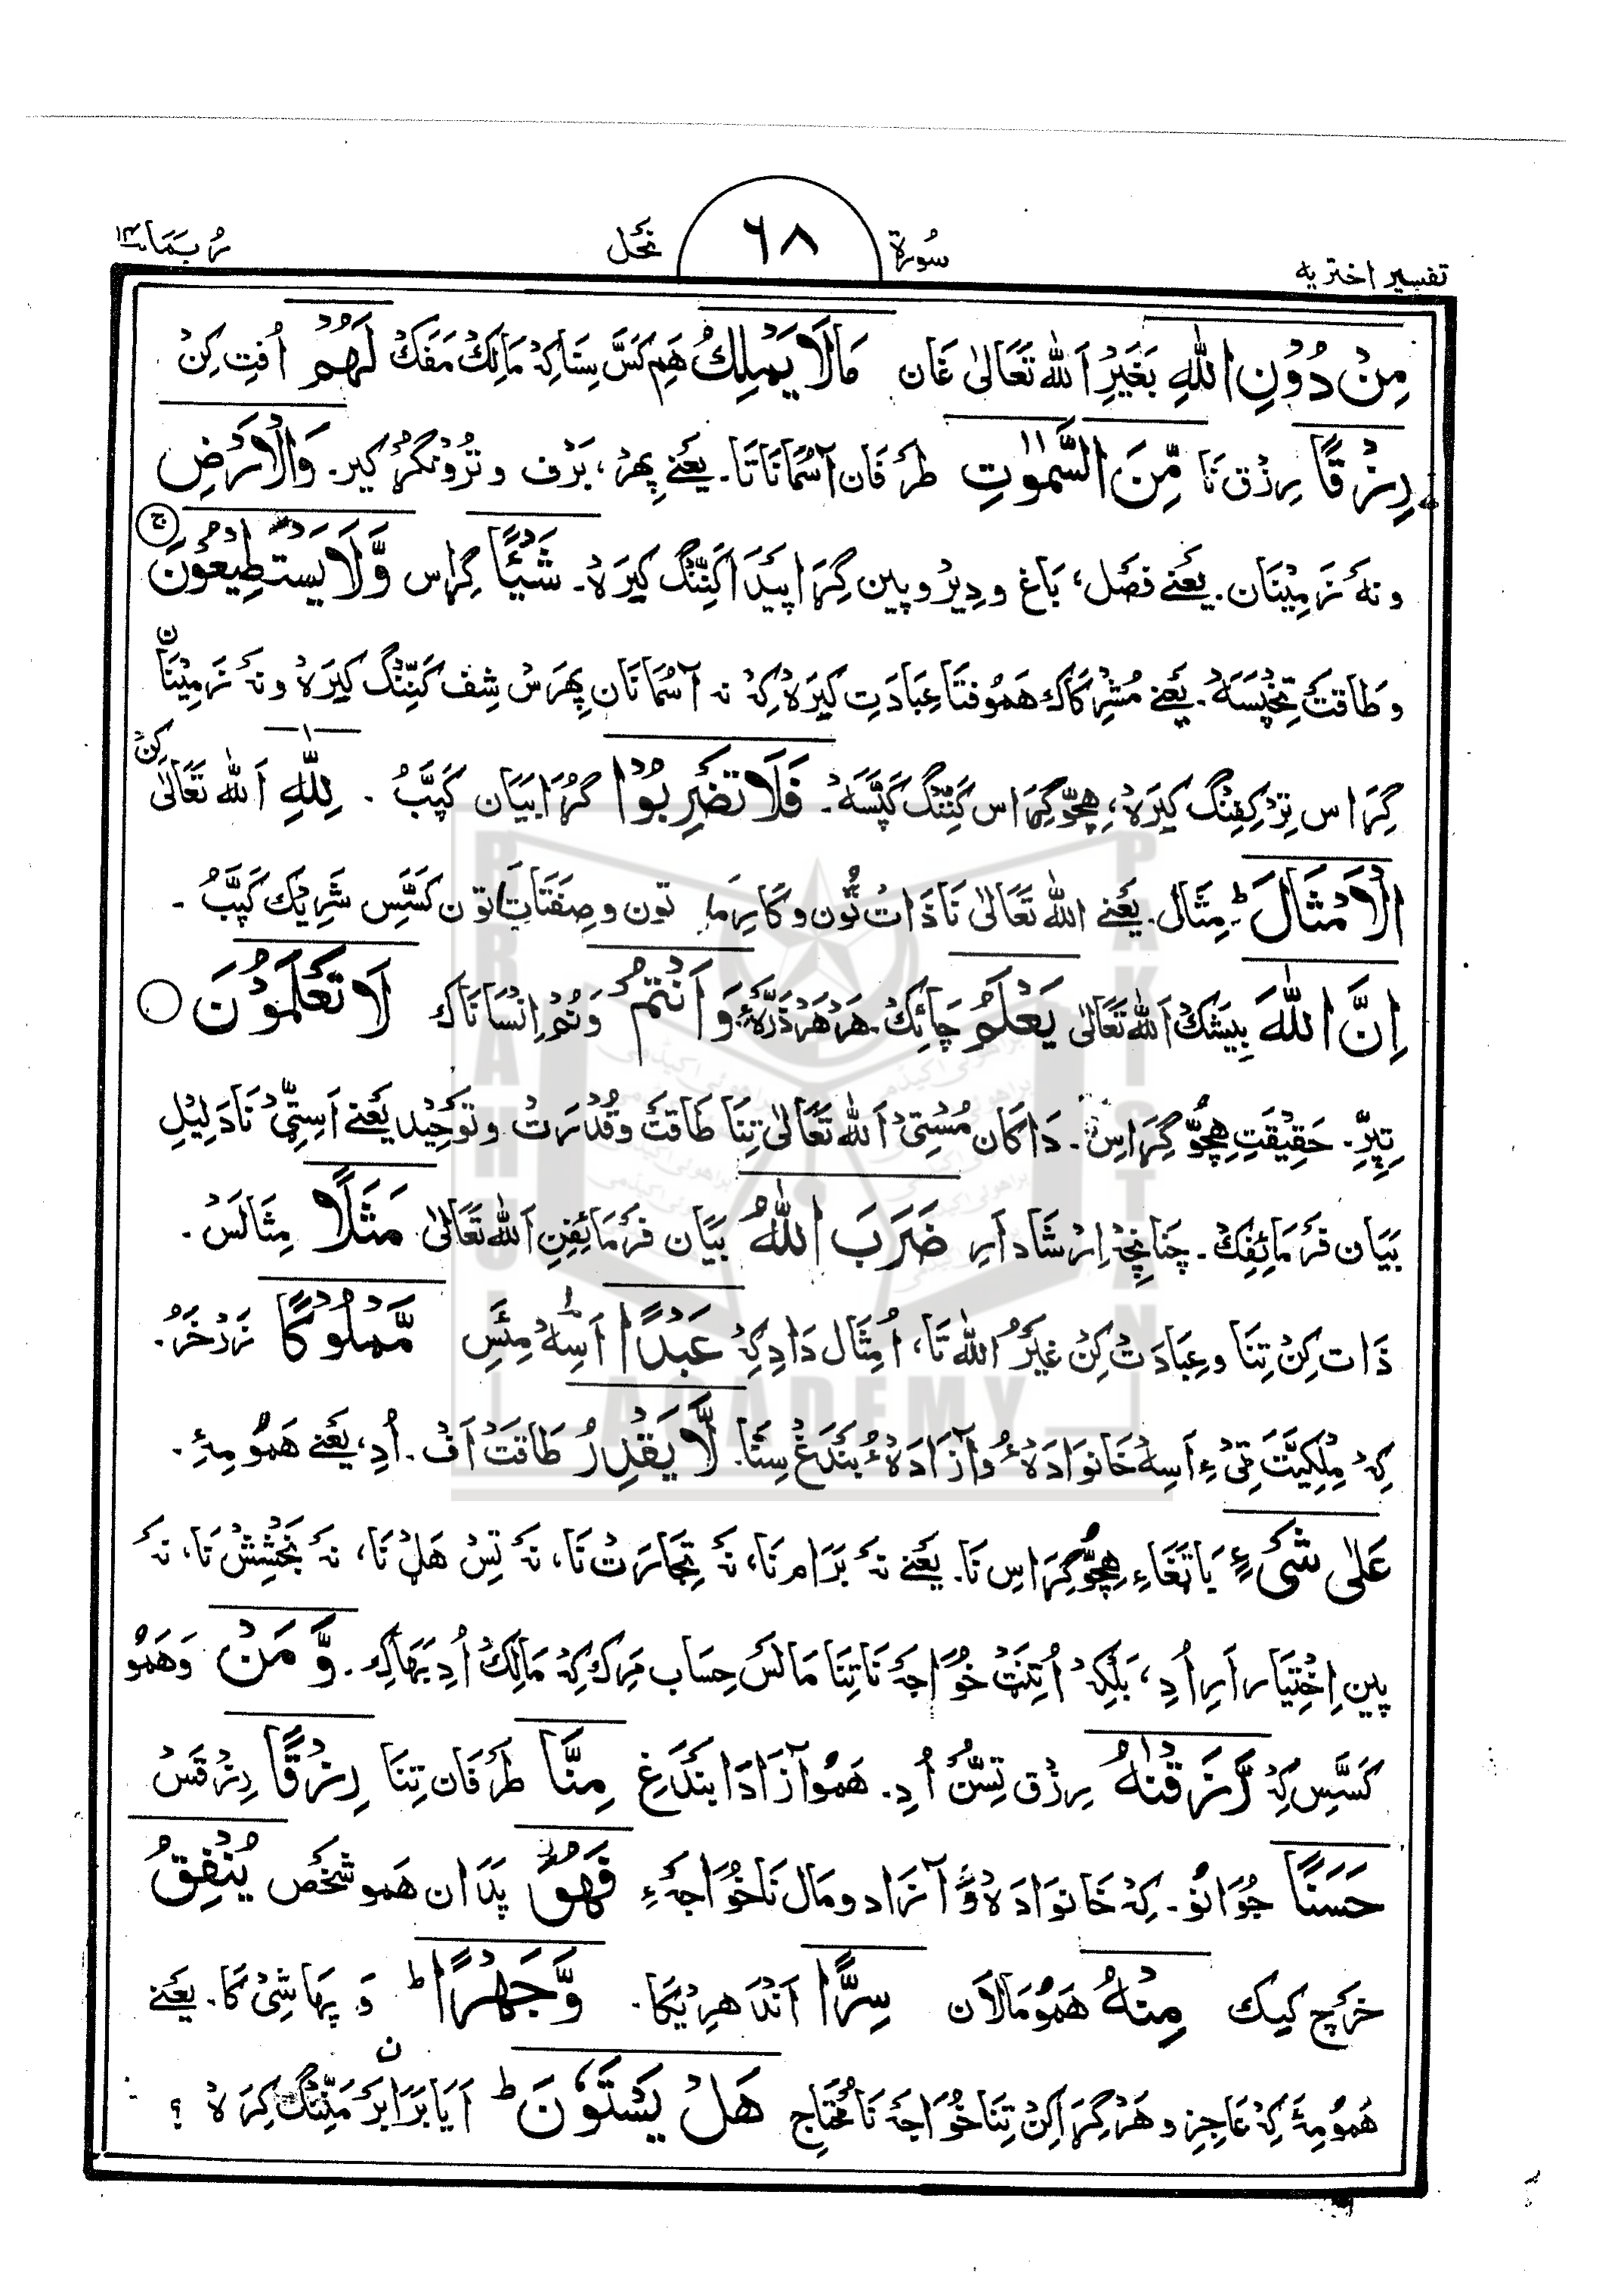 تفسیر اختریه
سُورة
٦٨
نَحَل
رُبَمَا ۱۴
مِنْ دُوْنِ اللّٰهِ بَغَیرِ اَللّٰه تَعَالیٰ غَان مَالَا يَمْلِكُ هَم کَسَّ سِتَا کِہ مَالِکْ مَفَکْ لَهُمْ اُفتِ کِنْ
رِزْقًا رِزْق نَا مِّنَ السَّمٰوٰتِ طَرَفَان آسْمَانَاتَا۔ یَعْنے پِھرْ، بَرْف و تْرُونگڑ کیر۔ وَالْاَرْضِ
و نَہ زَمِیْنَان۔ یَعْنے فَصَل، بَاغ و دِیر و پین گِڑَا پَیْدَا کَنِنْگ کیرَہ۔ شَيْئًا گِڑَاس وَّلَا يَسْتَطِيْعُوْنَ ج
و طَاقَتْ تَخْپَسَہ۔ یَعْنے مُشْرِکَاک هَمُوفتَا عِبَادَتِ کیرَہ کِہ نہ آسْمَانَان پِھرَسْ شِف کَنِنْگ کیرَہ و نَہ زَمِیْنَان
گِڑَاس تِرْکِفِنْگ کیرَہ، هِچّو گِڑَاس کَنِنْگ کَپَسَہ۔ فَلَا تَضْرِبُوْا گُڑَا بَیَان کَپَّبُ۔ لِلّٰهِ اَللّٰه تَعَالیٰ کِنْ
الْاَمْثَالَ ؕ مِثَال۔ یَعْنے اَللّٰه تَعَالیٰ نَا ذَات تُون و کَارِیمَا تون و صِفَتَاتِاتون کَسَّسِ شَرِیک کَپَّبُ۔
اِنَّ اللّٰهَ بیشَکْ اَللّٰه تَعَالیٰ يَعْلَمُ چَائِکْ هَرْ هَرْ ذَرَّہءِ وَاَنْتُمْ وَنُم اِنْسَانَاک لَا تَعْلَمُوْنَ ○
تِپِرِّ۔ حَقِیْقَتِ هِچّو گِڑَاسِ۔ دَاکَان مُسْتِیْ اَللّٰه تَعَالیٰ تِنَا طَاقَتْ و قُدْرَتْ و تَوحِیْد یَعْنے اَسِتِّیْ نَا دَلِیْلِ
بَیَان فَرْمَائِفِکْ۔ چَنَانچِہْ اِرْشَاد اَرِ ضَرَبَ اللّٰهُ بَیَان فَرْمَائِفِنِ اَللّٰه تَعَالیٰ مَثَلًا مِثَالَسْ۔
ذَات کِنْ تِنَا و عِبَادَتْ کِنْ غَیرُ اللّٰه تَا، اُ مِثَال دَادِ کِہ عَبْدًا اَسِہْ مِئَسِ مَّمْلُوْكًا زَرْخَرُ۔
کِہ مِلْکِیَّتَ ٹِیءِ اَسِہْ خَانوَادَہءُ و آزَادَہءُ بَنْدَغ سِنَا۔ لَّا يَقْدِرُ طَاقَتْ اَفْ۔ اُدِ، یَعْنے هَمُو مِئِ۔
عَلٰى شَيْءٍ یَاتَغَاءِ هِچّو گِڑَاسِ نَا۔ یَعْنے نَہ بَرَام نَا، نَہ تِجَارَتْ نَا، نَہ تِسْ هَلْ نَا، نَہ بَخْشِشْ نَا، نَہ
پین اِخْتِیَار اَرِ اُدِ، بَلْکِہْ اُ تِنَتْ خُوَاجَہ نَا تِنَا مَالَسْ حِسَاب مَرِک کِہ مَالِکْ اُدِ بَہَاکِہ۔ وَّمَنْ وَهَمُو
کَسَّسِ کِہ رَّزَقْنٰهُ رِزْق تِسُّن اُدِ۔ هَمُو آزَادَا بَنْدَغِ مِنَّا طَرَفَان تِنَا رِزْقًا رِزْقَسْ
حَسَنًا جُوَانُو۔ کِہ خَانوَادَہ وَّ آزَاد و مَال نَا خُوَاجَہءِ فَهُوَ پَدَان هَمو شَخَص يُنْفِقُ
خَرچ کیک مِنْهُ هَمُو مَالَان سِرًّا اَنْدَهرِیکَا۔ وَّجَهْرًا ؕ وَ پَہَاشِیْ کَا۔ یَعْنے
هَمُو مِئَ کِہ عَاجِزِ و هَرْ گِڑَا کِنْ تِنَا خُوَاجَہ نَا مُحْتَاجِ هَلْ يَسْتَوٗنَ ؕ اَیَا بَرَابَر مَنِنْگ کِرَہ ؟